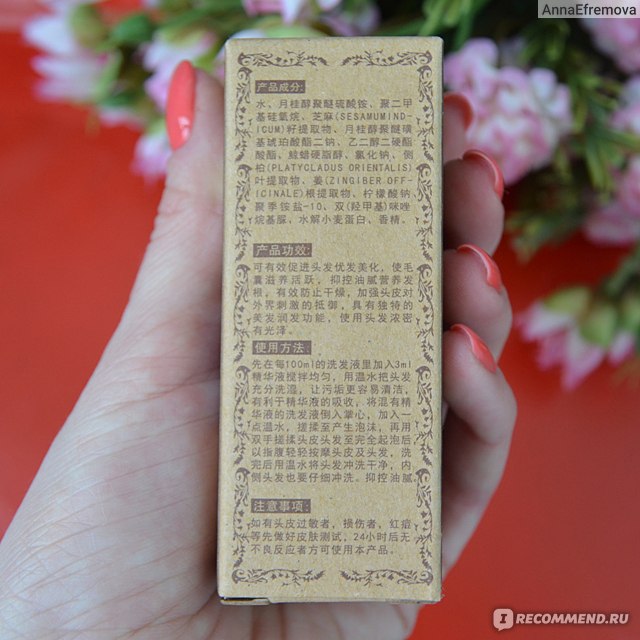 AnnaEfremova
产品成分:
水、月桂醇聚醚硫酸铵、聚二甲
基硅氧烷、芝麻(SESAMUMIND-
ICUM)籽提取物、月桂醇聚醚磺
基琥珀酸酯二钠、乙二醇二硬酯
酸酯、鲸蜡硬脂醇、氯化钠、侧
柏(PLATYCLADUS ORIENTALIS)
叶提取物、姜(ZINGIBER OFF-
ICINALE)根提取物、柠檬酸钠
聚季铵盐-10、双(羟甲基)咪唑
烷基脲、水解小麦蛋白、香精、
产品功效:
可有效促进头发优发美化，使毛
囊滋养活跃，抑控油腻营养发
根，有效防止干燥，加强头皮对
外界刺激的抵御，具有独特的
美发润发功能，使用头发浓密
有光泽。
使用方法:
先在每100ml的洗发液里加入3ml
精华液搅拌均匀，用温水把头发
充分洗湿，让污垢更容易清洁，
有利于精华液的吸收，将混有精
华液的洗发液倒入掌心，加入一
点温水，搓揉至产生泡沫，再用
双手搓揉头皮头发至完全起泡后
以指腹轻轻按摩头皮及头发，洗
完后用温水将头发冲洗干净，内
侧头发也要仔细冲洗。抑控油腻
注意事项:
如有头皮过敏者，损伤者，红痘
等先做好皮肤测试，24小时后无
不良反应者方可使用本产品。
IRECOMMEND.RU